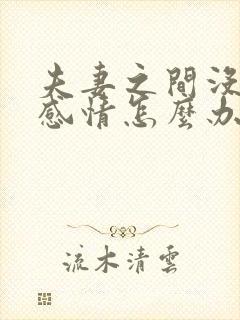 夫妻之間沒
感情怎麼办
流木清雲